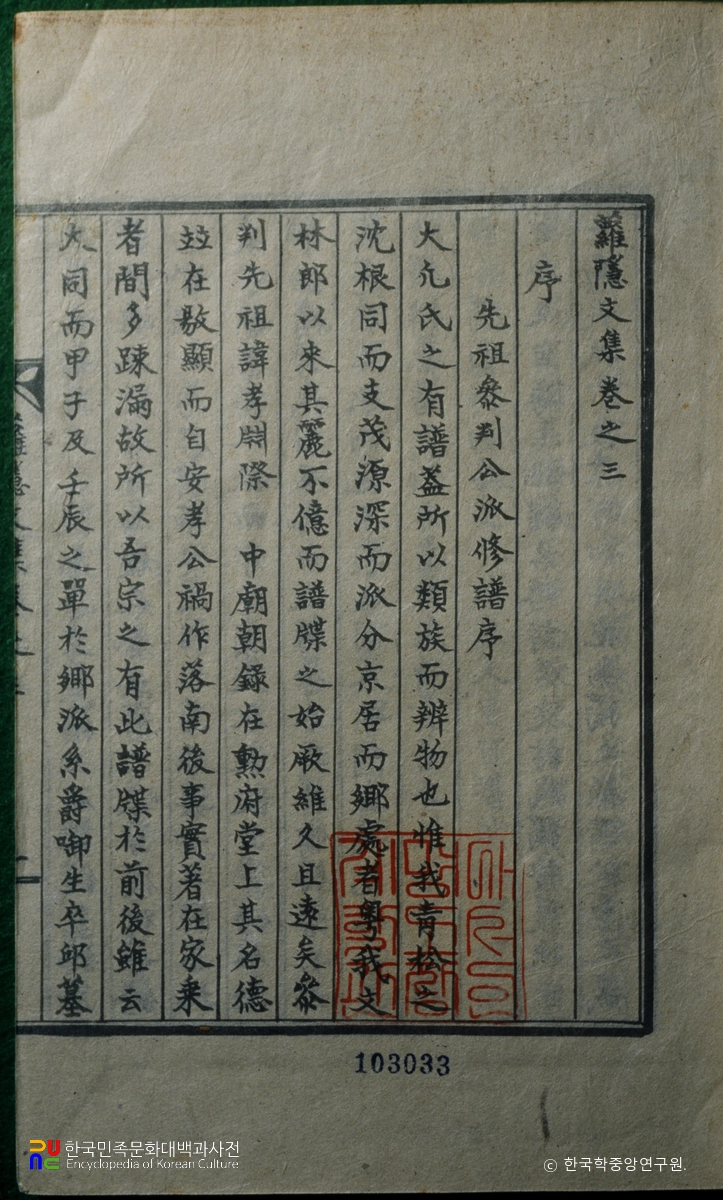 蘿隱文集卷之三
序
先祖叅判公派修譜序
大凢氏之有譜盖所以類族而辨物也惟我青松之
沈根同而支茂源深而派分京居而鄉處者粤我文
林郎以來其麗不億而譜牒之始厥維久且遠矣叅
判先祖諱孝 際 中廟朝錄在勲府堂上其名德
竝在敭顯而自安孝公禍作落南後事實著在家乘
者間多踈漏故所以吾宗之有此譜牒於前後雖云
大同而甲子及壬辰之單於鄉派系爵啣生卒邱墓
103033
한국민족문화대백과사전
Encyclopedia of Korean Culture
ⓒ 한국학중앙연구원.